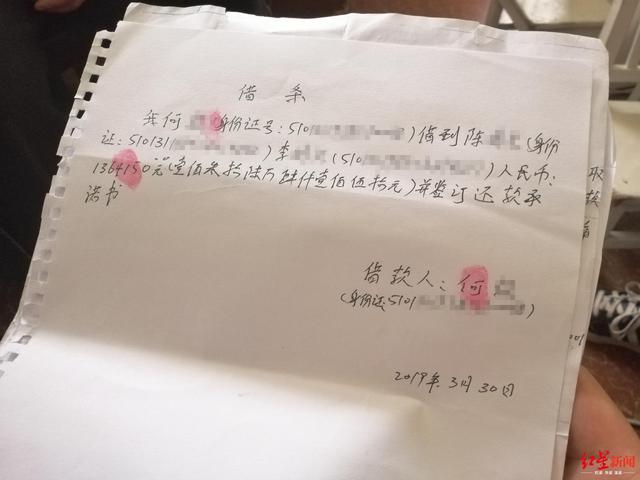 借条
我何 (身份证号:5101 )借到陈 (身份
证:5101311 )李 (5101 )人民币:
1364150元(壹佰叁拾陆万肆仟壹佰伍拾元)并签订还款承
诺书
借款人:何
(身份证5101 )
2019年3月30日
取
红星新闻